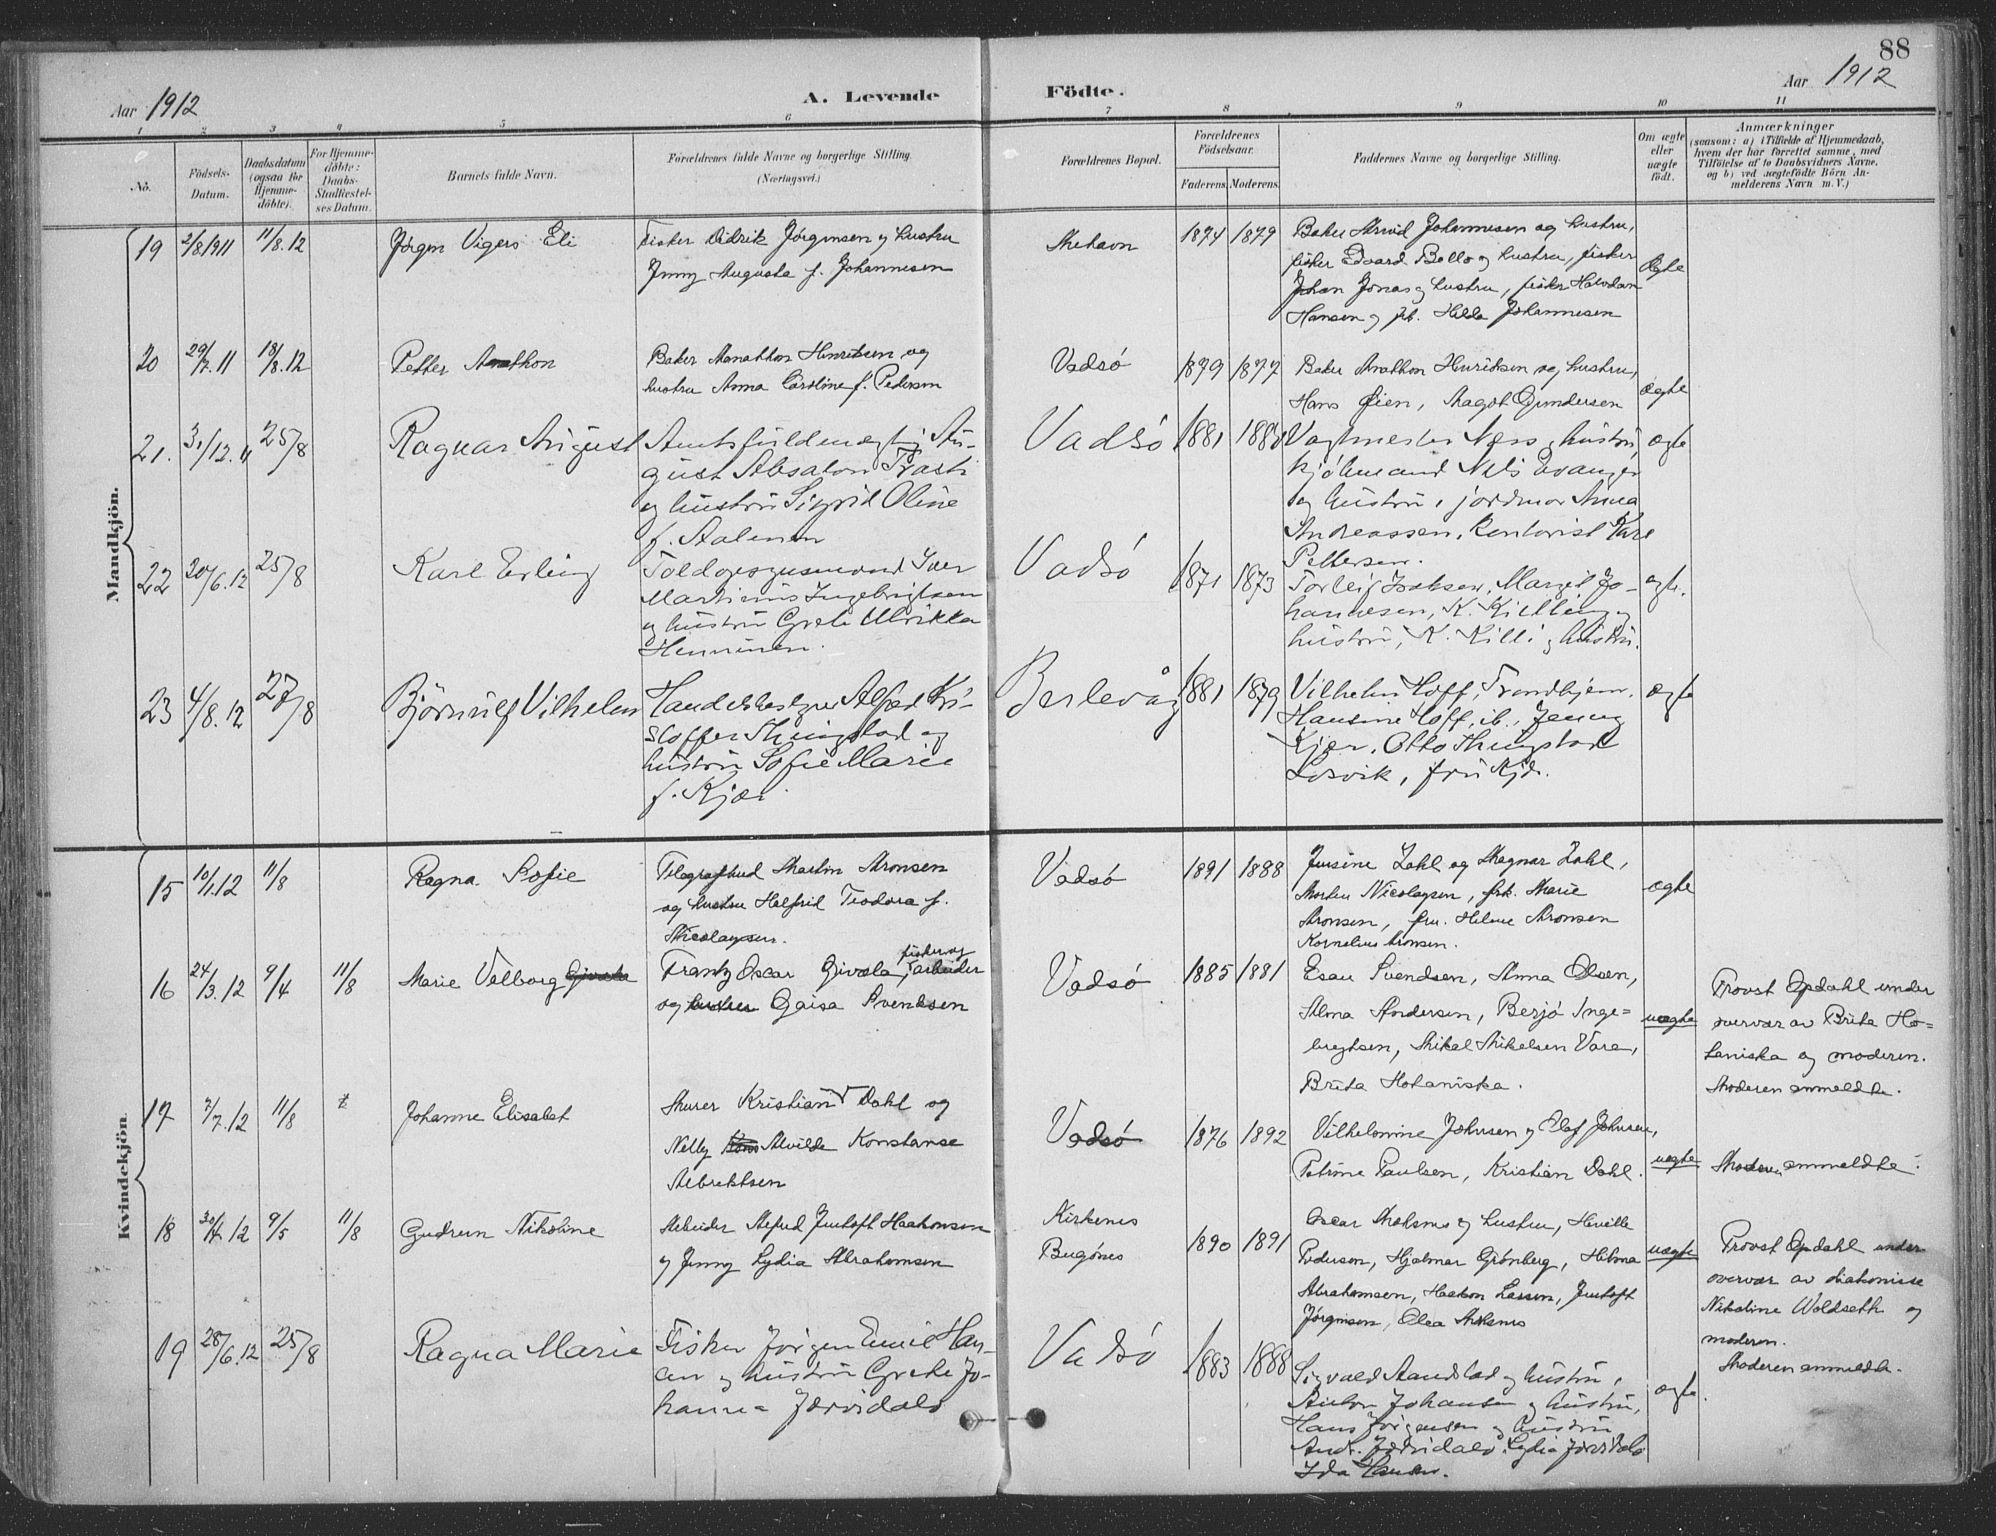 88
Aar 1912
A. Levende Födte.
Aar 1912
1 2 3 4 5 6 7 8 9 10 11
No.
Födsels-Datum.
Daabsdatum (ogsaa for Hjemme-döbte).
For Hjemme-döbte: Daabs-Stadfæstel-ses Datum.
Barnets fulde Navn.
Forældrenes fulde Navne og borgerlige Stilling. (Næringsvei.)
Forældrenes Bopæl.
Forældrenes Födselsaar.
Faderens. Moderens.
Faddernes Navne og borgerlige Stilling.
Om ægte eller uægte födt.
Anmærkninger
(saasom: a) i Tilfælde af Hjemmedaab, hvem der har forrettet samme, med Tilföielse af to Daabsvidners Navne, og b) ved uægtefödte Börn An-melderens Navn m. V.)
Mandkjön.
19 2/8.1911 11/8.12
Jørgen Vigers Eli
Fisker Didrik Jørgensen og hustru
Jenny Augusta f. Johannesen
1874 1879
Baker Arvid Johannesen og hustru,
fisker Edvard Bello og hustru, fisker
Johan Jonas og hustru, fisker Halvdan
Hansen og frk. Hilda Johannesen
ægte
20 29/7.11 18/8.12
Petter Anathon
Baker Anathon Henriksen og
hustru Anna Caroline f. Pedersen
Vadsö
1879 1877
Baker Anathon Henriksen og hustru,
Hans Øien, Magot Gundersen
ægte
21. 31/12.11 25/8
Ragnar August
Amtsfuldmægtig Au-
gust Absalon Trasti
og hustru Sigrid Oline
f. Aalemen
Vadsö
1881
Vagtmester Næss og hustru
kjöbmand Nils Evanger
og hustru, jordmor Anna
Andreassen, kontorist Kåre
Pettersen.
ægte
22 20/6.12 25/8
Karl Erling
Toldopsynsmand Iver
Martinus Ingebrigtsen
og hustru Grete Ulrikka
Henninen.
Vadsö
1871 1873
Torleif Isaksen, Margit Jo-
hannesen, K. Kielling og
hustru, K. Killi og hustru.
ægte.
23 4/8.12 27/8
Björnulf Vilhelm
Handelsbestyrer Alfred Kri-
stoffer Thingstad og
hustru Sofie Marie
f. Kjær.
Berlevåg
1881 1879
Vilhelm Hoff, Trondhjem.
Hansine Hoff, ib., Jenny
Kjær, Otto Thingstad
Losvik, fru Kjær.
ægte
Kvindekjön.
15 10/1.12 11/8
Ragna Sofie
Telegrafbud Martin Aronsen
og hustru Halfrid Teodora f.
Nicolaysen.
Vadsö
1891 1888
Jensine Dahl og Ragnar Dahl,
Morten Nicolaysen, frk. Marie
Aronsen, fru. Helene Aronsen
Kornelius Aronsen.
ægte
16 24/3.12 9/4 11/8
Marie Valborg Givæla
fisker og
Frantz Oscar Givæla, arbeider
og hustru Gaisa Svendsen
Vadsö
1885 1881
Esau Svendsen, Anna Olsen,
Alma Andersen, Berjö Inge=
bregtsen, Mikal Mikelsen Vara,
Brita Hotaniska.
uægte
Provst Opdahl under
overvær av Brita Ho=
taniska og moderen.
Moderen anmeldte.
17 7/7.12 11/8
Johanne Elisabet
Murer Kristian Dahl og
Nelly Alvilde Konstanse
Albrektsen
Vadsö
1876 1892
Vilhelmine Johnsen og Olaf Johnsen,
Petrine Paulsen, Kristian Dahl.
uægte
Moderen anmeldte.
18 30/4.12 9/5 11/8
Gudrun Nikoline
Arbeider Alfred Justoft Haakonsen
og Jenny Lydia Abrahamsen
Kirkenes
Bugönes
1890 1891
Oscar Moksnes og hustru,
Pederson, Hjalmar Grönberg, Hilma
Abrahamsen, Haakon Larsen, Justoft
Jørgensen, Olea Moksnes
uægte
Provst Opdahl under
overvær av diakonisse
Nikoline Woldseth og
moderen.
Moderen anmeldte.
19 28/6.12 25/8
Ragna Marie
Fisker Jörgen Emil Han-
sen og hustru Grete Jo-
hanna Jærvidalo
Vadsö
1883 1888
Sigvald Aandstad og hustru,
Anton Johansen og hustru,
Hans Jörgensen og hustru
Andr. Jærvidalo, Lydia Jærvidalo
Ida Hansen.
ægte.